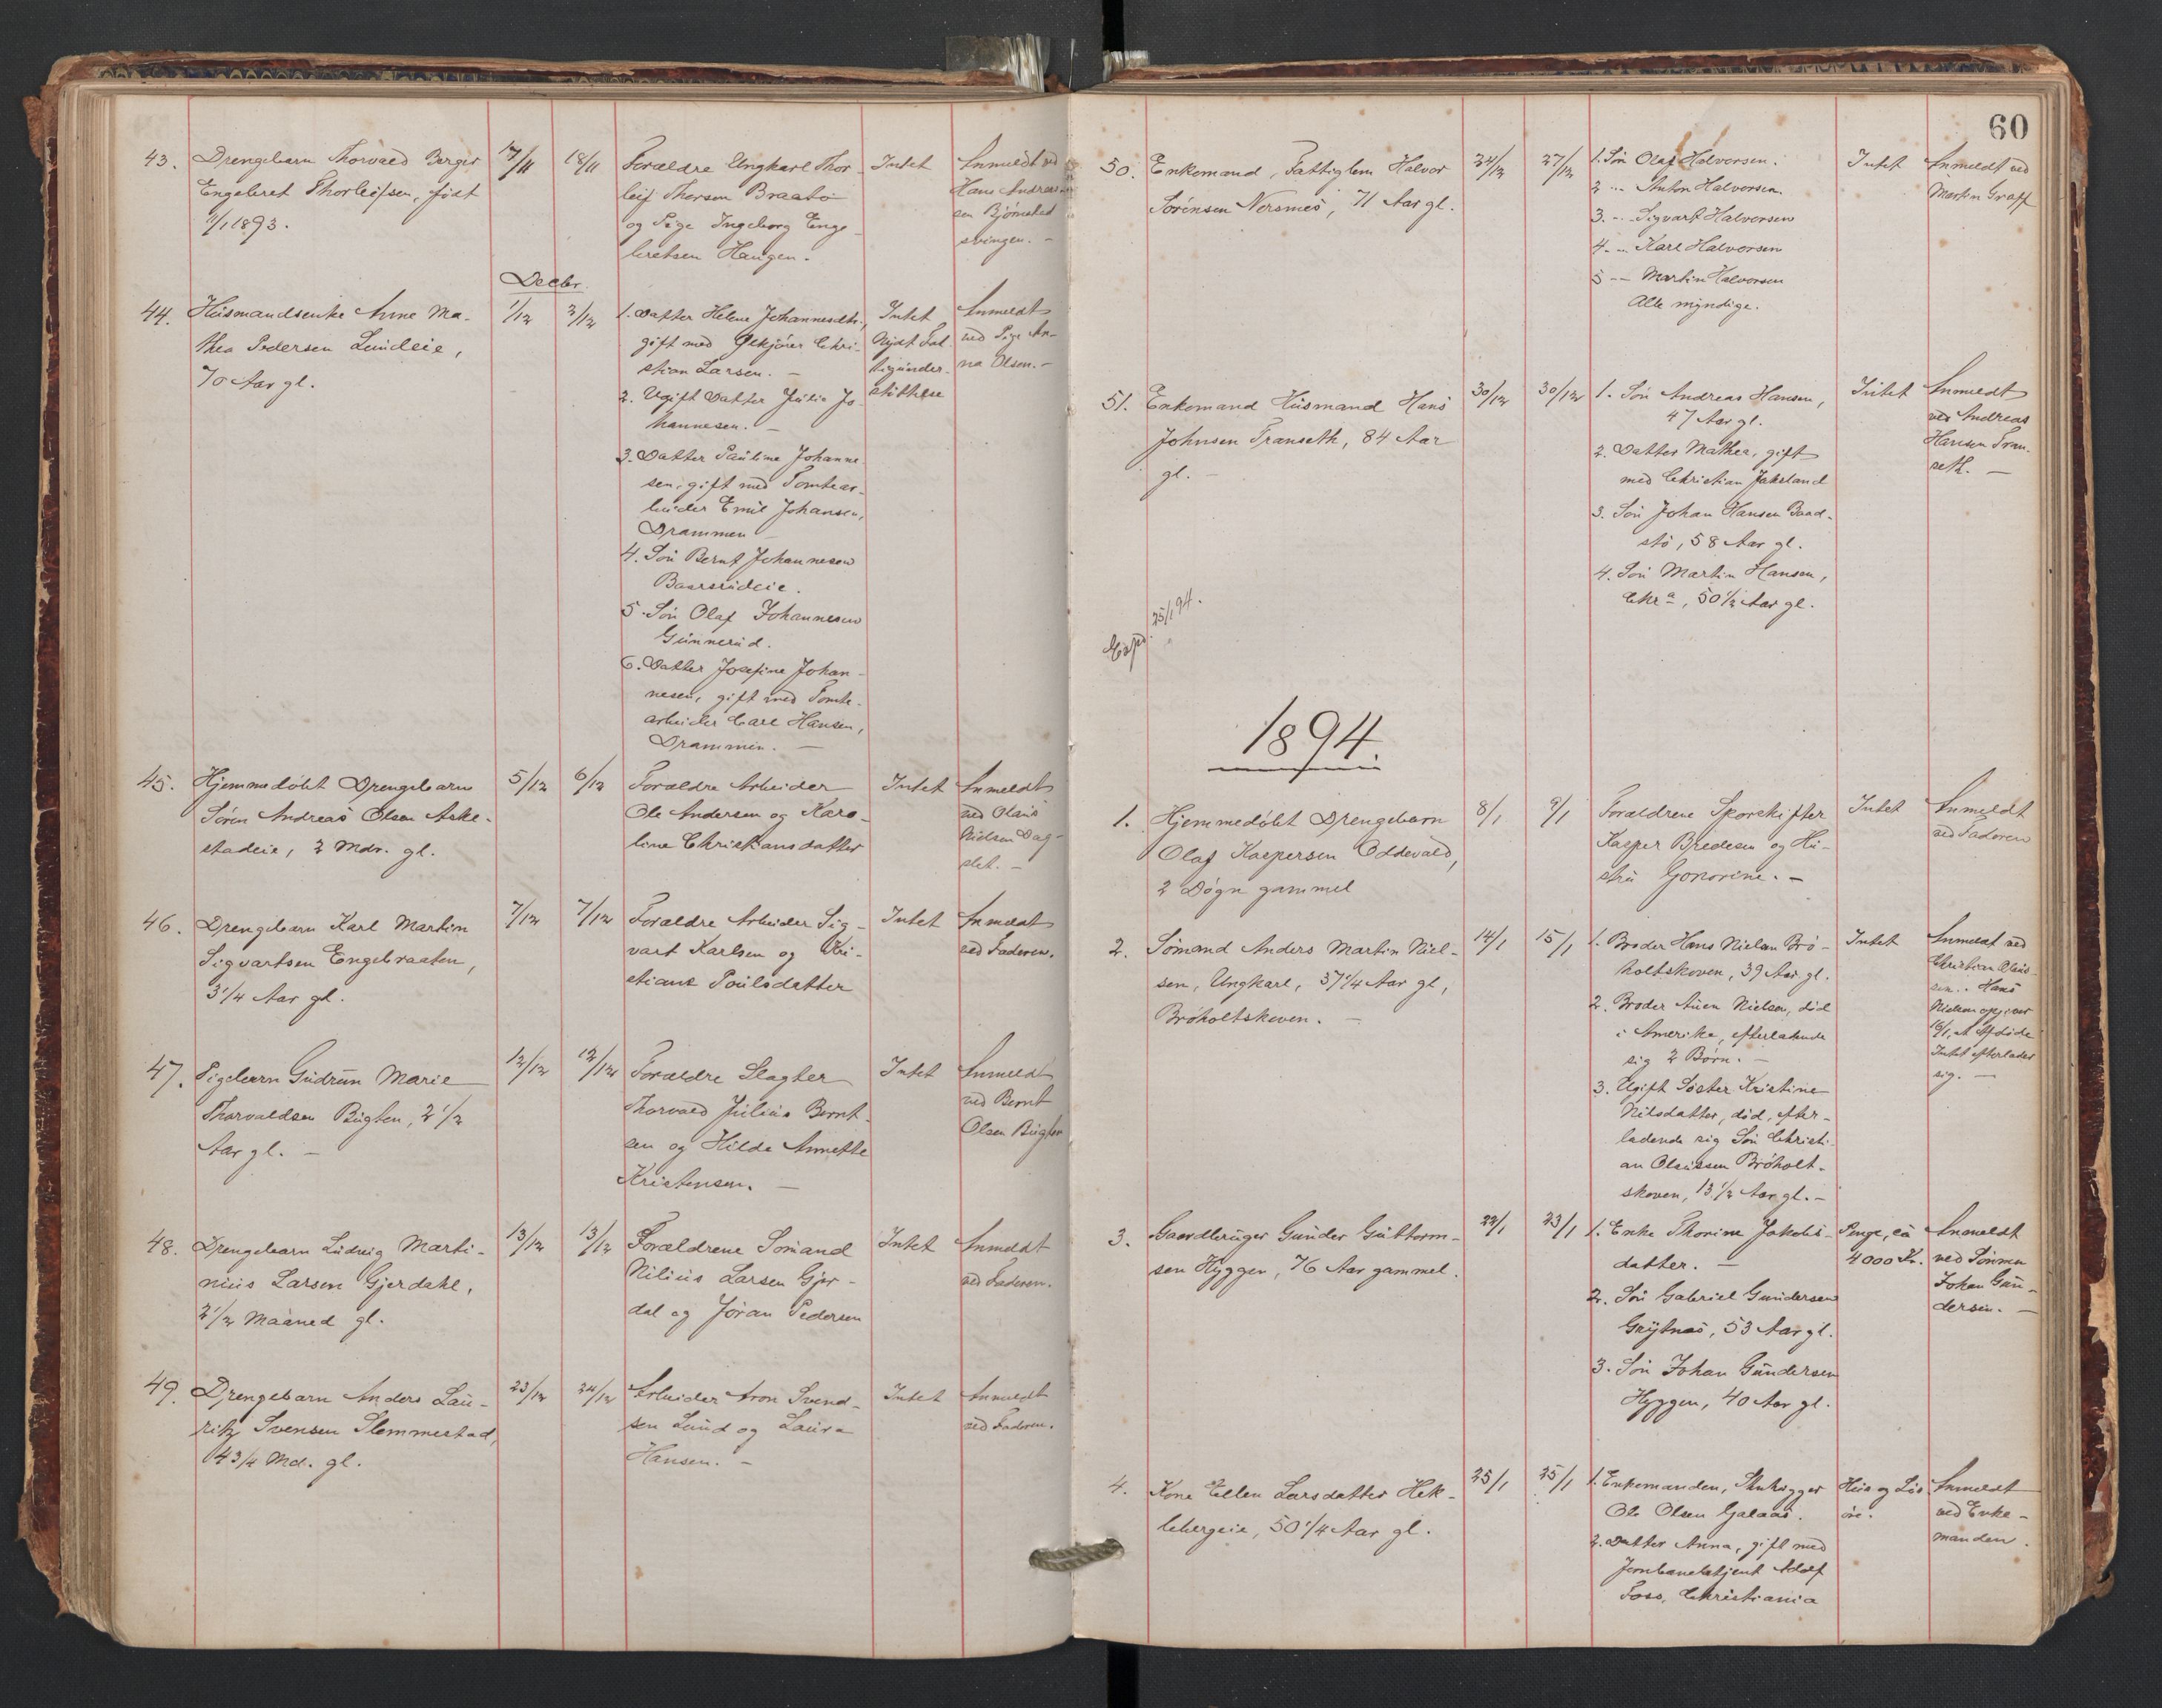 43. Drengebarn Thorvald Berger
Engebret Thorleifsen, født
11/1 1893.
17/11 18/11
Forældre Ungkarl Thor-
leif Thorsen Braatø
og Pige Ingeborg Enge-
bretsen Haugen.
Intet
Anmeldt ved
Hans Andrea-
sen Bjørnstad
svingen. -
Decbr.
44. Husmandsenke Anne Ma-
thea Pedersen Lundeie,
70 Aar gl.
1/12 2/12
1. Datter Helene Johannesdtr.,
gift med Opkjører Chri-
stian Larsen. -
2. Ugift Datter Julie Jo-
hannesen. -
3. Datter Pauline Johanne-
sen, gift med Tomtear-
beider Emil Johansen,
Drammen
4. Søn Bernt Johannesen
Baarsrudeie.
5. Søn Olaf Johannesen
Gunnerud.
6. Datter Josefine Johan-
nesen, gift med Tomte-
arbeider Carl Hansen,
Drammen. -
Intet
Nydt Fat-
tigunder-
støttelse
Anmeldt
ved Pige An-
na Olsen. -
45. Hjemmedøbt Drengebarn
Søren Andreas Olsen Aske-
stadeie, 2 Mdr. gl.
5/12 6/12
Forældre Arbeider
Ole Andersen og Karo-
line Christiansdatter
Intet
Anmeldt
ved Olaus
Nielsen Dag-
slet. -
46. Drengebarn Karl Martin
Sigvartsen Engebraaten,
3 1/4 Aar gl.
7/12 7/12
Forældre Arbeider Sig-
vart Karlsen og Kri-
stiane Poulsdatter
Intet
Anmeldt
ved Faderen.
47. Pigebarn Gudrun Marie
Thorvaldsen Bugten, 2 1/2
Aar gl. -
12/12 12/12
Forældre Slagter
Thorvald Julius Bernt-
sen og Hilda Annette
Kristensen. -
Intet
Anmeldt
ved Bernt
Olsen Bugten
48. Drengebarn Ludvig Marti-
nius Larsen Gjerdahl,
2 1/2 Maaned gl.
13/12 13/12
Forældrene Sømand
Nilius Larsen Gjer-
dal og Jøran Pedersen
Intet
Anmeldt
ved Faderen.
49. Drengebarn Anders Lau-
ritz Svensen Slemmestad,
4 3/4 Md. gl.
23/12 24/12
Arbeider Aron Svend-
sen Lund og Laura
Hansen. -
Intet
Anmeldt
ved Faderen.
60
50. Enkemand, Fattiglem Halvor
Sørensen Nersnes, 71 Aar gl.
24/12 27/12
1. Søn Olaf Halvorsen.
2 -- Anton Halvorsen
3. -- Sigvart Halvorsen
4. -- Karl Halvorsen
5 -- Martin Halvorsen
Alle myndige.
Intet
Anmeldt ved
Morten Graff
51. Enkemand Husmand Hans
Johnsen Transeth, 84 Aar
gl. -
30/12 30/12
1. Søn Andreas Hansen,
47 Aar gl.
2. Datter Mathea, gift
med Christian Jakslund
3. Søn Johan Hansen Baad-
stø, 58 Aar gl.
4. Søn Martin Hansen,
Chra, 50 1/2 Aar gl.
Intet
Anmeldt
ved Andreas
Hansen Tran-
seth. -
Exped. 25/1 94.
1894.
1. Hjemmedøbt Drengebarn
Olaf Kaspersen Oddevald,
2 Døgn gammel
8/1 9/1
Forældrene Sporskifter
Kasper Bredesen og Hu-
stru Gonorine. -
Intet
Anmeldt
ved Faderen
2. Sømand Anders Martin Niel-
sen, Ungkarl, 37 1/4 Aar gl,
Brøholtskoven. -
14/1 15/1
1. Broder Hans Nielsen Brø-
holtskoven, 39 Aar gl.
2. Broder Auen Nielsen, død
i Amerika, efterladende
sig 2 Børn. -
3. Ugift Søster Kristine
Nilsdatter, død, efter-
ladende sig Søn Christi-
an Olaussen Brøholt-
skoven, 13 1/2 Aar gl. -
Intet
Anmeldt ved
Christian Olaus-
sen. - Hans
Nielsen opgiver
16/1, at Afdøde
Intet efterlader
sig. -
3. Gaardbruger Gunder Guttorm-
sen Hyggen, 76 Aar gammel.
22/1 23/1
1. Enke Thorine Jakobs-
datter. -
2. Søn Gabriel Gundersen
Grytnæs, 53 Aar gl.
3. Søn Johan Gundersen
Hyggen, 40 Aar gl.
Penge, ca
4000 Kr.
Anmeldt
ved Sønnen
Johan Gun-
dersen. -
4. Kone Ellen Larsdatter Hek-
lebergeie, 50 1/4 Aar gl.
25/1 25/1
1. Enkemanden, Stenhugger
Ole Olsen Galaas.
2. Datter Anna, gift med
Jernbanebetjent Adolf
Foss, Christiania
Huse og Løs-
øre.
Anmeldt
ved Enke-
manden.